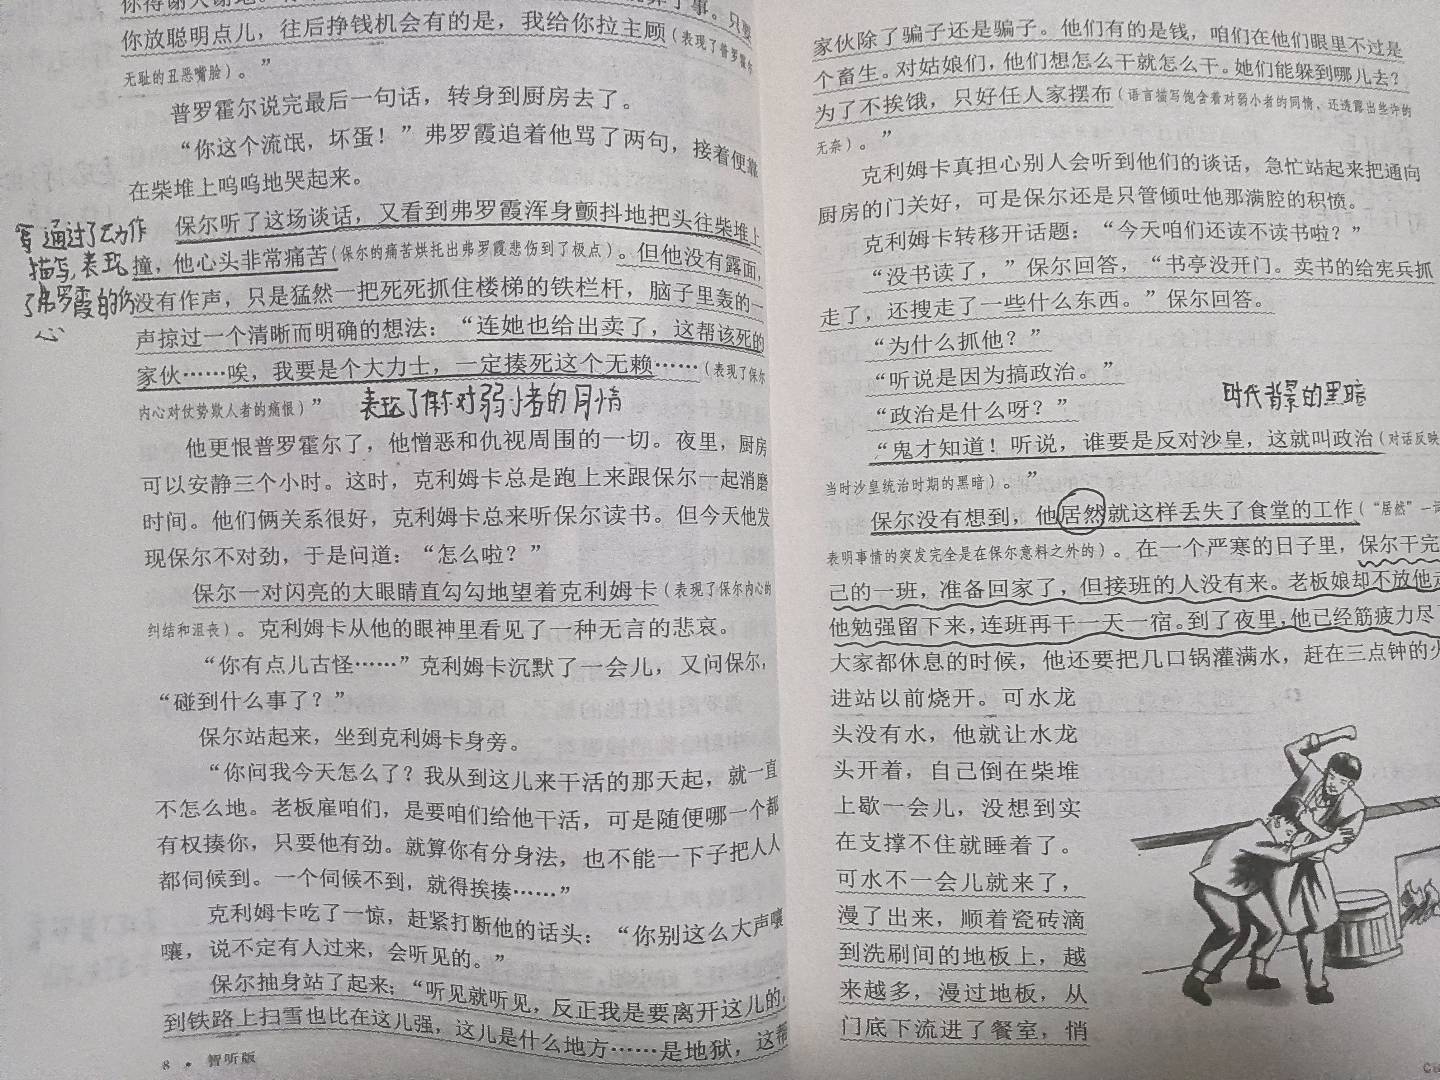 你放聪明点儿，往后挣钱机会有的是，我给你拉主顾（表现了普罗霍尔
无耻的丑恶嘴脸）。”
普罗霍尔说完最后一句话，转身到厨房去了。
“你这个流氓，坏蛋！”弗罗霞追着他骂了两句，接着便靠
在柴堆上呜呜地哭起来。
保尔听了这场谈话，又看到弗罗霞浑身颤抖地把头往柴堆上
撞，他心头非常痛苦（保尔的痛苦烘托出弗罗霞悲伤到了极点）。但他没有露面，
没有作声，只是猛然一把死死抓住楼梯的铁栏杆，脑子里轰的一
声掠过一个清晰而明确的想法：“连她也给出卖了，这帮该死的
家伙……唉，我要是个大力士，一定揍死这个无赖……（表现了保尔
内心对仗势欺人者的痛恨）”
写通过了动作
描写，表现
了弗罗霞的伤
心
表现了保尔对弱小者的同情
他更恨普罗霍尔了，他憎恶和仇视周围的一切。夜里，厨房
可以安静三个小时。这时，克利姆卡总是跑上来跟保尔一起消磨
时间。他们俩关系很好，克利姆卡总来听保尔读书。但今天他发
现保尔不对劲，于是问道：“怎么啦？”
保尔一对闪亮的大眼睛直勾勾地望着克利姆卡（表现了保尔内心的
纠结和沮丧）。克利姆卡从他的眼神里看见了一种无言的悲哀。
“你有点儿古怪……”克利姆卡沉默了一会儿，又问保尔，
“碰到什么事了？”
保尔站起来，坐到克利姆卡身旁。
“你问我今天怎么了？我从到这儿来干活的那天起，就一直
不怎么地。老板雇咱们，是要咱们给他干活，可是随便哪一个都
有权揍你，只要他有劲。就算你有分身法，也不能一下子把人人
都伺候到。一个伺候不到，就得挨揍……”
克利姆卡吃了一惊，赶紧打断他的话头：“你别这么大声嚷
嚷，说不定有人过来，会听见的。”
保尔抽身站了起来：“听见就听见，反正我是要离开这儿的，
到铁路上扫雪也比在这儿强，这儿是什么地方……是地狱，这帮
8 · 智听版
家伙除了骗子还是骗子。他们有的是钱，咱们在他们眼里不过是
个畜生。对姑娘们，他们想怎么干就怎么干。她们能躲到哪儿去？
为了不挨饿，只好任人家摆布（语言描写饱含着对弱小者的同情，还透露出些许的
无奈）。”
克利姆卡真担心别人会听到他们的谈话，急忙站起来把通向
厨房的门关好，可是保尔还是只管倾吐他那满腔的积愤。
克利姆卡转移开话题：“今天咱们还读不读书啦？”
“没书读了，”保尔回答，“书亭没开门。卖书的给宪兵抓
走了，还搜走了一些什么东西。”保尔回答。
“为什么抓他？”
“听说是因为搞政治。”
“政治是什么呀？”
时代背景的黑暗
“鬼才知道！听说，谁要是反对沙皇，这就叫政治（对话反映
当时沙皇统治时期的黑暗）。”
保尔没有想到，他居然就这样丢失了食堂的工作（“居然”一词
表明事情的突发完全是在保尔意料之外的）。在一个严寒的日子里，保尔干完
己的一班，准备回家了，但接班的人没有来。老板娘却不放他走
他勉强留下来，连班再干一天一宿。到了夜里，他已经筋疲力尽
大家都休息的时候，他还要把几口锅灌满水，赶在三点钟的火
进站以前烧开。可水龙
头没有水，他就让水龙
头开着，自己倒在柴堆
上歇一会儿，没想到实
在支撑不住就睡着了。
可水不一会儿就来了，
漫了出来，顺着瓷砖滴
到洗刷间的地板上，越
来越多，漫过地板，从
门底下流进了餐室，悄